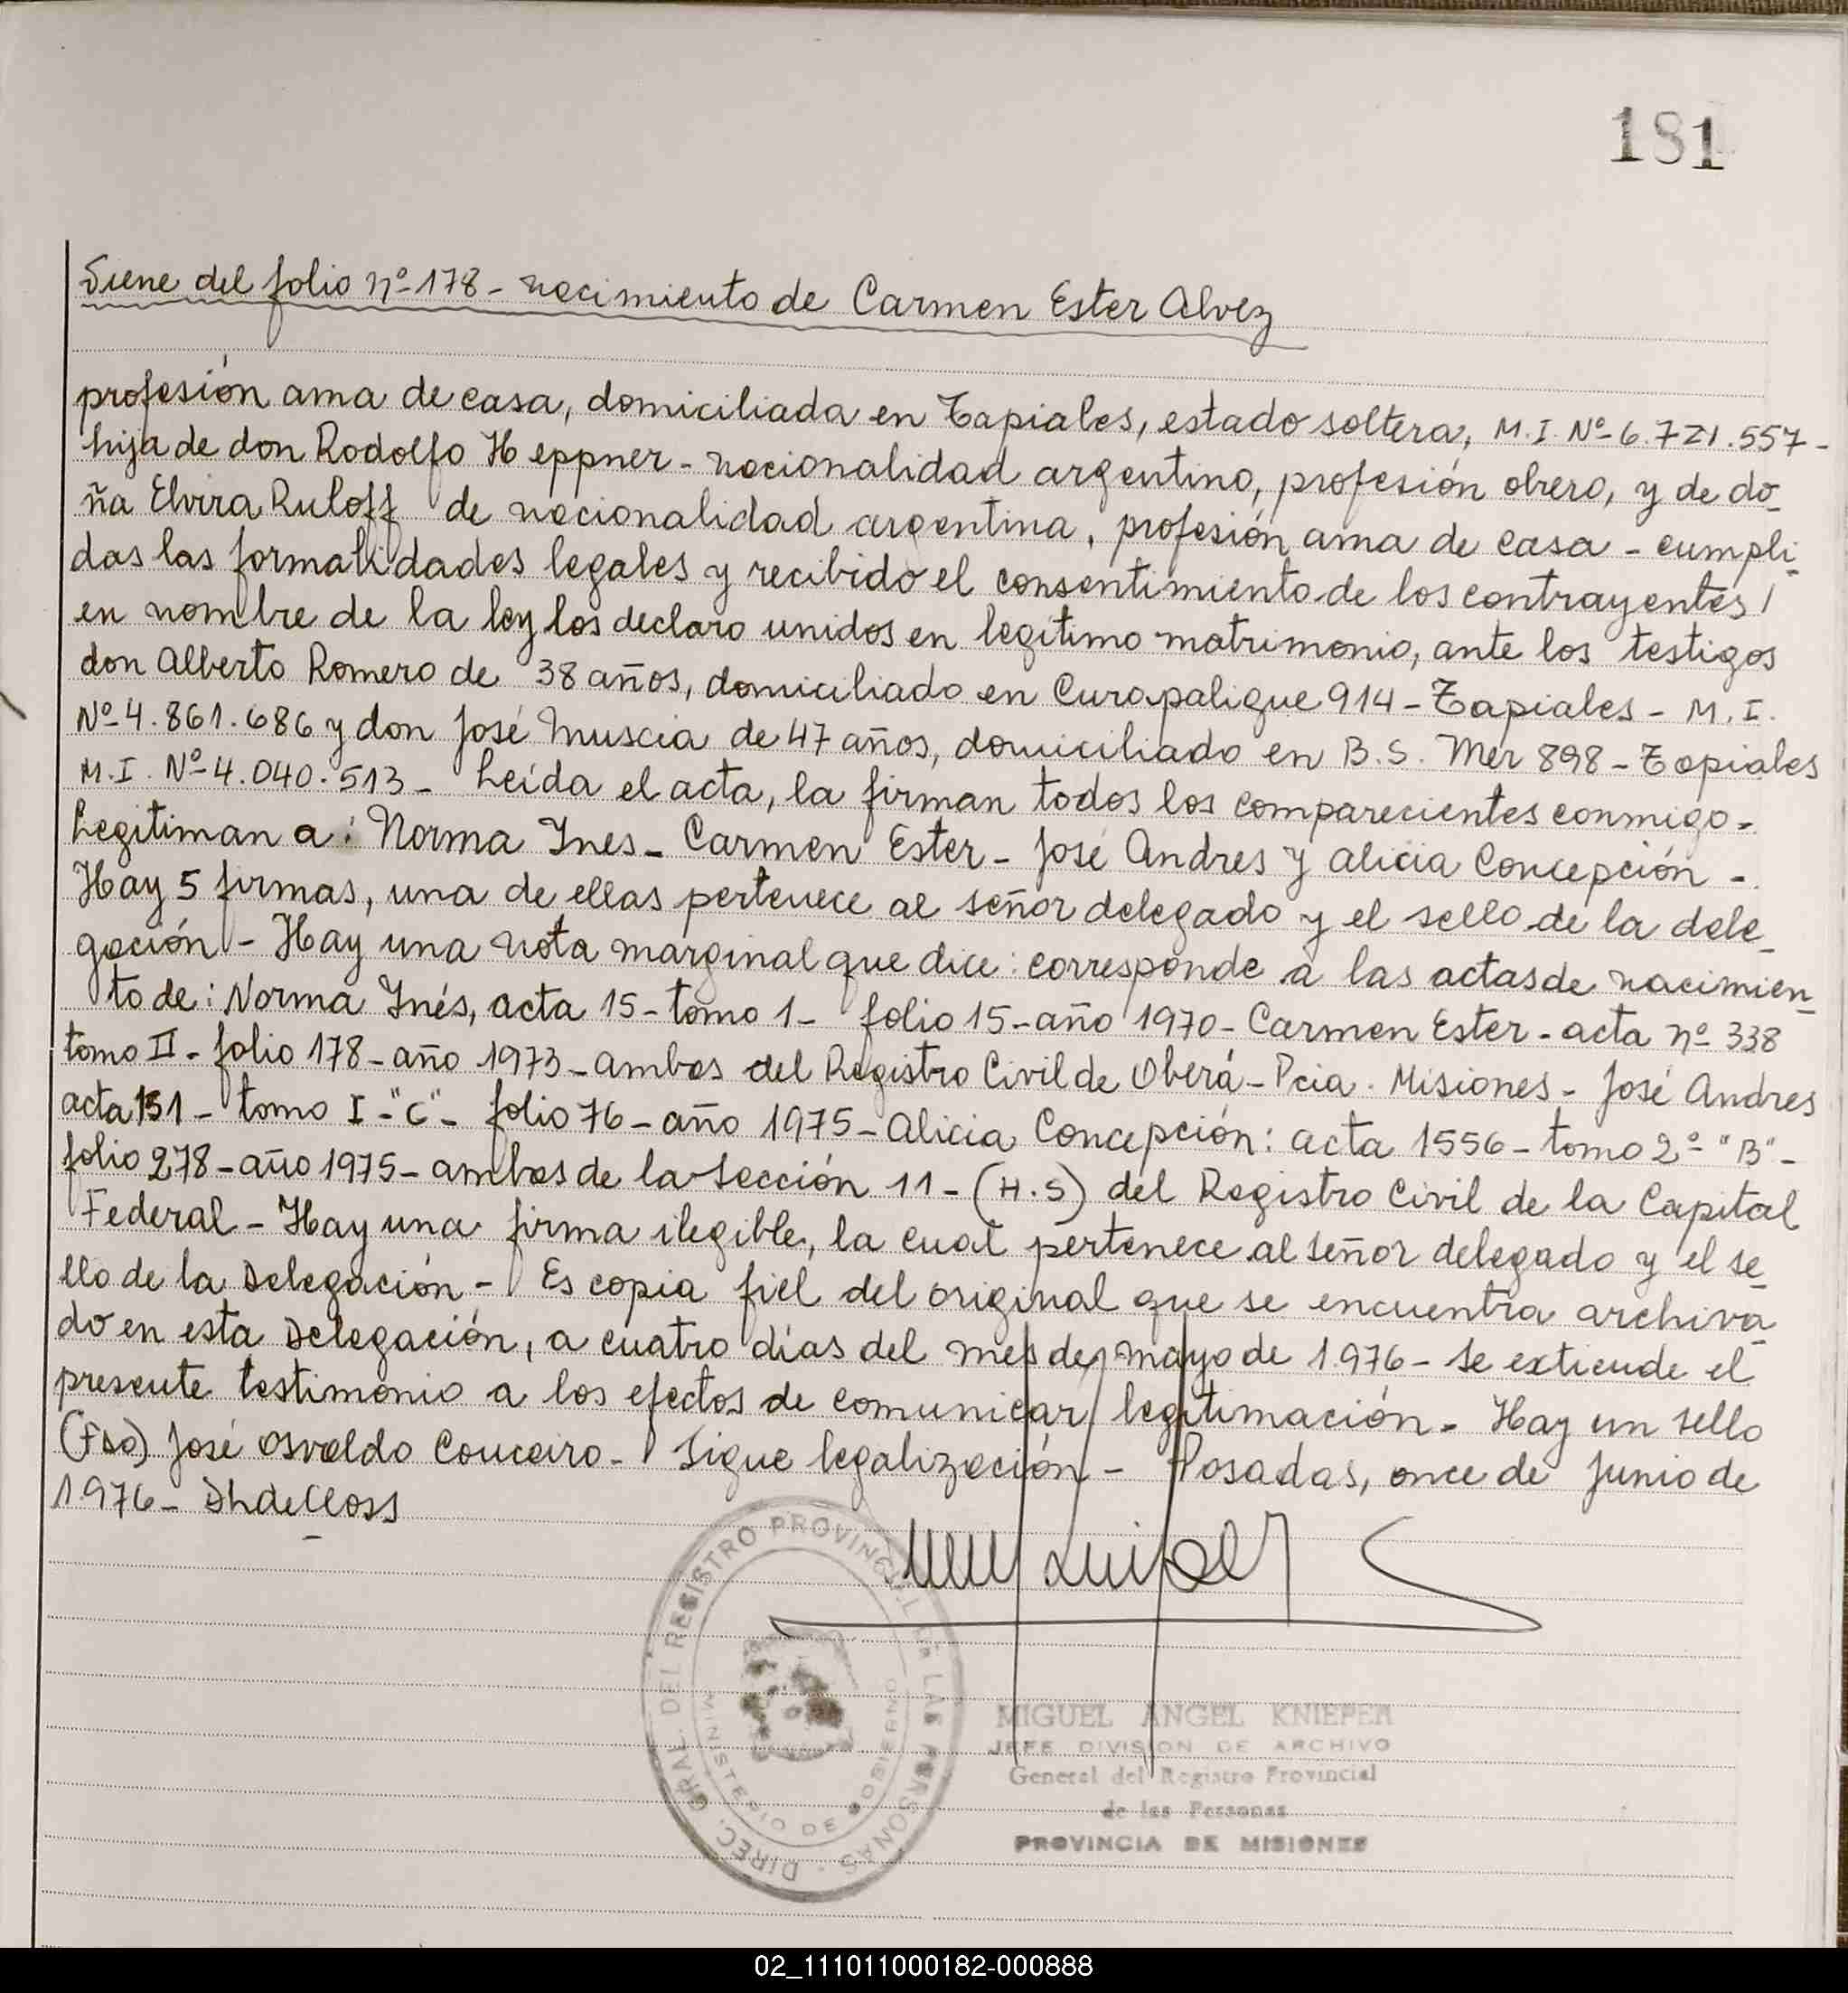 181
Viene del folio nº 178 - nacimiento de Carmen Ester Alvez
profesión ama de casa, domiciliada en Tapiales, estado soltera, M.I. Nº 6.721.557 -
hija de don Rodolfo Heppner - nacionalidad argentino, profesión obrero, y de do-
ña Elvira Ruloff de nacionalidad argentina, profesión ama de casa - cumpli-
das las formalidades legales y recibido el consentimiento de los contrayentes /
en nombre de la ley los declaro unidos en legitimo matrimonio, ante los testigos
don Alberto Romero de 38 años, domiciliado en Curapaligue 914 - Tapiales - M.I.
Nº 4.861.686 y don José Muscia de 47 años, domiciliado en B.S. Mer 898 - Tapiales
M.I. Nº 4.040.513 - Leída el acta, la firman todos los comparecientes conmigo -
Legitiman a: Norma Ines - Carmen Ester - José Andres y Alicia Concepción -
Hay 5 firmas, una de ellas pertenece al señor delegado y el sello de la dele-
gación - Hay una nota marginal que dice: corresponde a las actas de nacimien-
to de: Norma Inés, acta 15 - tomo 1 - folio 15 - año 1970 - Carmen Ester - acta nº 338
tomo II - folio 178 - año 1973 - ambos del Registro Civil de Oberá - Pcia. Misiones - José Andres
acta 151 - tomo I - "C" - folio 76 - año 1975 - Alicia Concepción: acta 1556 - tomo 2º "B" -
folio 278 - año 1975 - ambos de la Sección 11 - (H.S) del Registro Civil de la Capital
Federal - Hay una firma ilegible, la cual pertenece al señor delegado y el se-
llo de la Delegación - Es copia fiel del original que se encuentra archiva-
do en esta Delegación, a cuatro días del mes de mayo de 1976 - Se extiende el
presente testimonio a los efectos de comunicar legitimación - Hay un sello
(Fdo) José Osvaldo Couceiro - Sigue legalización - Posadas, once de Junio de
1976 -
DIREC. GRAL. DEL REGISTRO PROVINCIAL DE LAS PERSONAS
MINISTERIO DE GOBIERNO
MIGUEL ANGEL KNIEPER
JEFE DIVISION DE ARCHIVO
General del Registro Provincial
de las Personas
PROVINCIA DE MISIONES
02_111011000182-000888